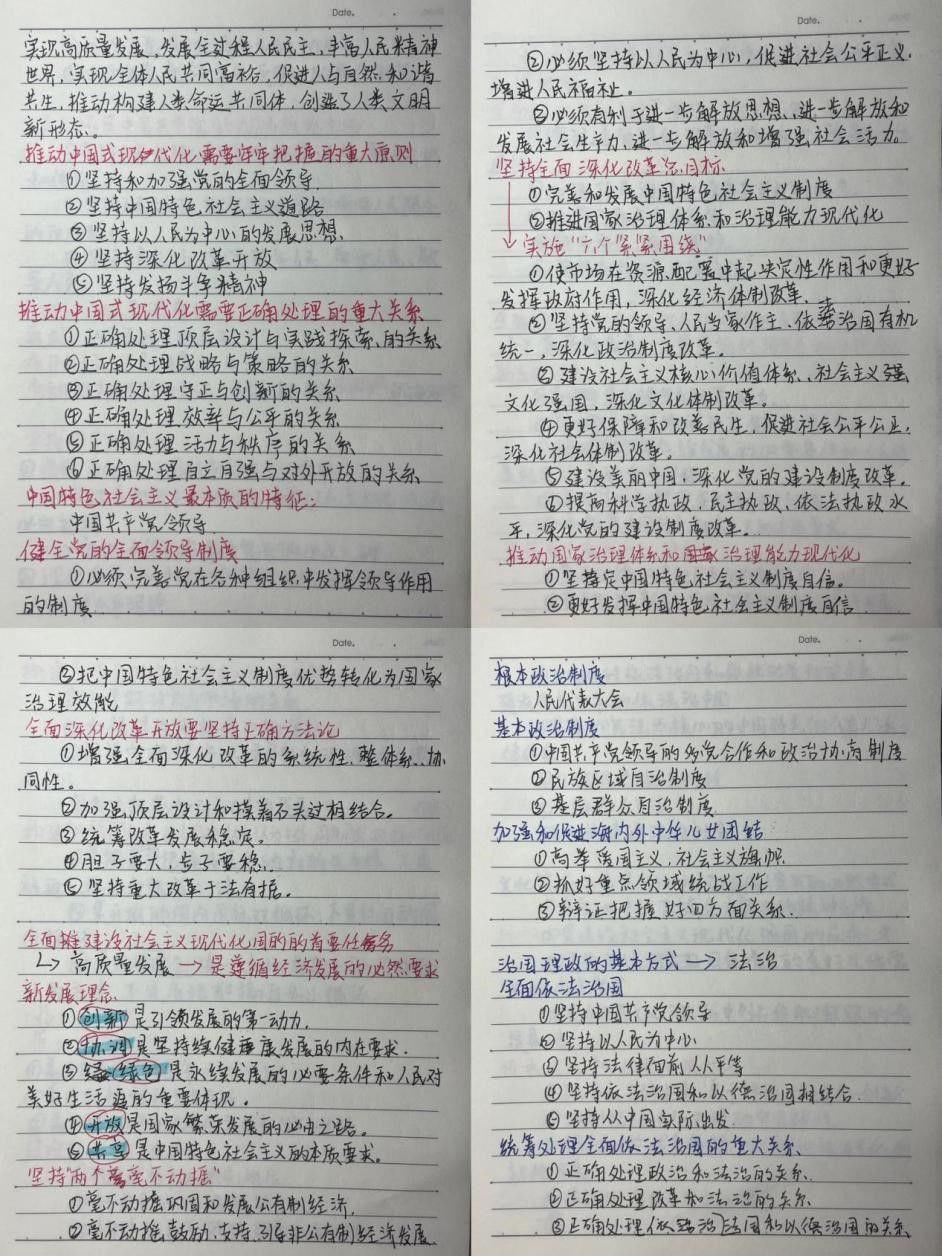 Date.
实现高质量发展,发展全过程人民民主,丰富人民精神
世界,实现全体人民共同富裕,促进人与自然和谐
共生,推动构建人类命运共同体,创造了人类文明
新形态。
推动中国式现代化需要牢牢把握的重大原则
①坚持和加强党的全面领导
②坚持中国特色社会主义道路
③坚持以人民为中心的发展思想、
④坚持深化改革开放
⑤坚持发扬斗争精神
推动中国式现代化需要正确处理的重大关系
①正确处理顶层设计与实践探索的关系
②正确处理战略与策略的关系
③正确处理守正与创新的关系
④正确处理效率与公平的关系
⑤正确处理活力与秩序的关系
⑥正确处理自立自强与对外开放的关系
中国特色社会主义最本质的特征:
中国共产党领导
健全党的全面领导制度
①必须完善党在各种组织中发挥领导作用
的制度
Date.
②必须坚持以人民为中心,促进社会公平正义,
增进人民福祉。
③必须有利于进一步解放思想、进一步解放和
发展社会生产力、进一步解放和增强社会活力。
坚持全面深化改革总目标
①完善和发展中国特色社会主义制度
②推进国家治理体系和治理能力现代化
实施“六个紧紧围绕”
①使市场在资源配置中起决定性作用和更好
发挥政府作用,深化经济体制改革.
②坚持党的领导、人民当家作主、依法治国有机
统一,深化政治制度改革。
③建设社会主义核心价值体系、社会主义强
文化强国,深化文化体制改革。
④更好保障和改善民生,促进社会公平公正,
深化社会体制改革。
⑤建设美丽中国,深化党的建设制度改革。
⑥提高科学执政、民主执政、依法执政水
平,深化党的建设制度改革。
推动国家治理体系和治理能力现代化
①坚持定中国特色社会主义制度自信。
②更好发挥中国特色社会主义制度自信
Date.
③把中国特色社会主义制度优势转化为国家
治理效能
全面深化改革开放要坚持正确方法论
①增强全面深化改革的系统性、整体系、协
同性。
②加强顶层设计和摸着石头过相结合。
③统筹改革发展稳定。
④胆子要大,步子要稳.
⑤坚持重大改革于法有据。
全面推建设社会主义现代化国的的首要任务
↳高质量发展→是遵循经济发展的必然要求
新发展理念
①创新是引领发展的第一动力.
②协调是坚持续健康发展的内在要求.
③绿色是永续发展的必要条件和人民对
美好生活追的重要体现。
④开放是国家繁荣发展的必由之路。
⑤共享是中国特色社会主义的本质要求。
坚持“两个毫不动摇”
①毫不动摇巩固和发展公有制经济.
②毫不动摇鼓励、支持、引导非公有制经济发展
Date.
根本政治制度
人民代表大会
基本政治制度
①中国共产党领导的多党合作和政治协商制度
②民族区域自治制度
③基层群众自治制度
加强和促进海内外中华儿女团结
①高举爱国主义、社会主义旗帜
②抓好重点领域统战工作
③辩证把握好四方面关系.
治国理政的基本方式→法治
全面依法治国
①坚持中国共产党领导
②坚持以人民为中心
③坚持法律面前人人平等
④坚持依法治国和以德治国相结合
⑤坚持从中国实际出发
统筹处理全面依法治国的重大关系
①正确处理政治和法治的关系.
②正确处理改革和法治的关系.
③正确处理依法治国和以德治国的关系